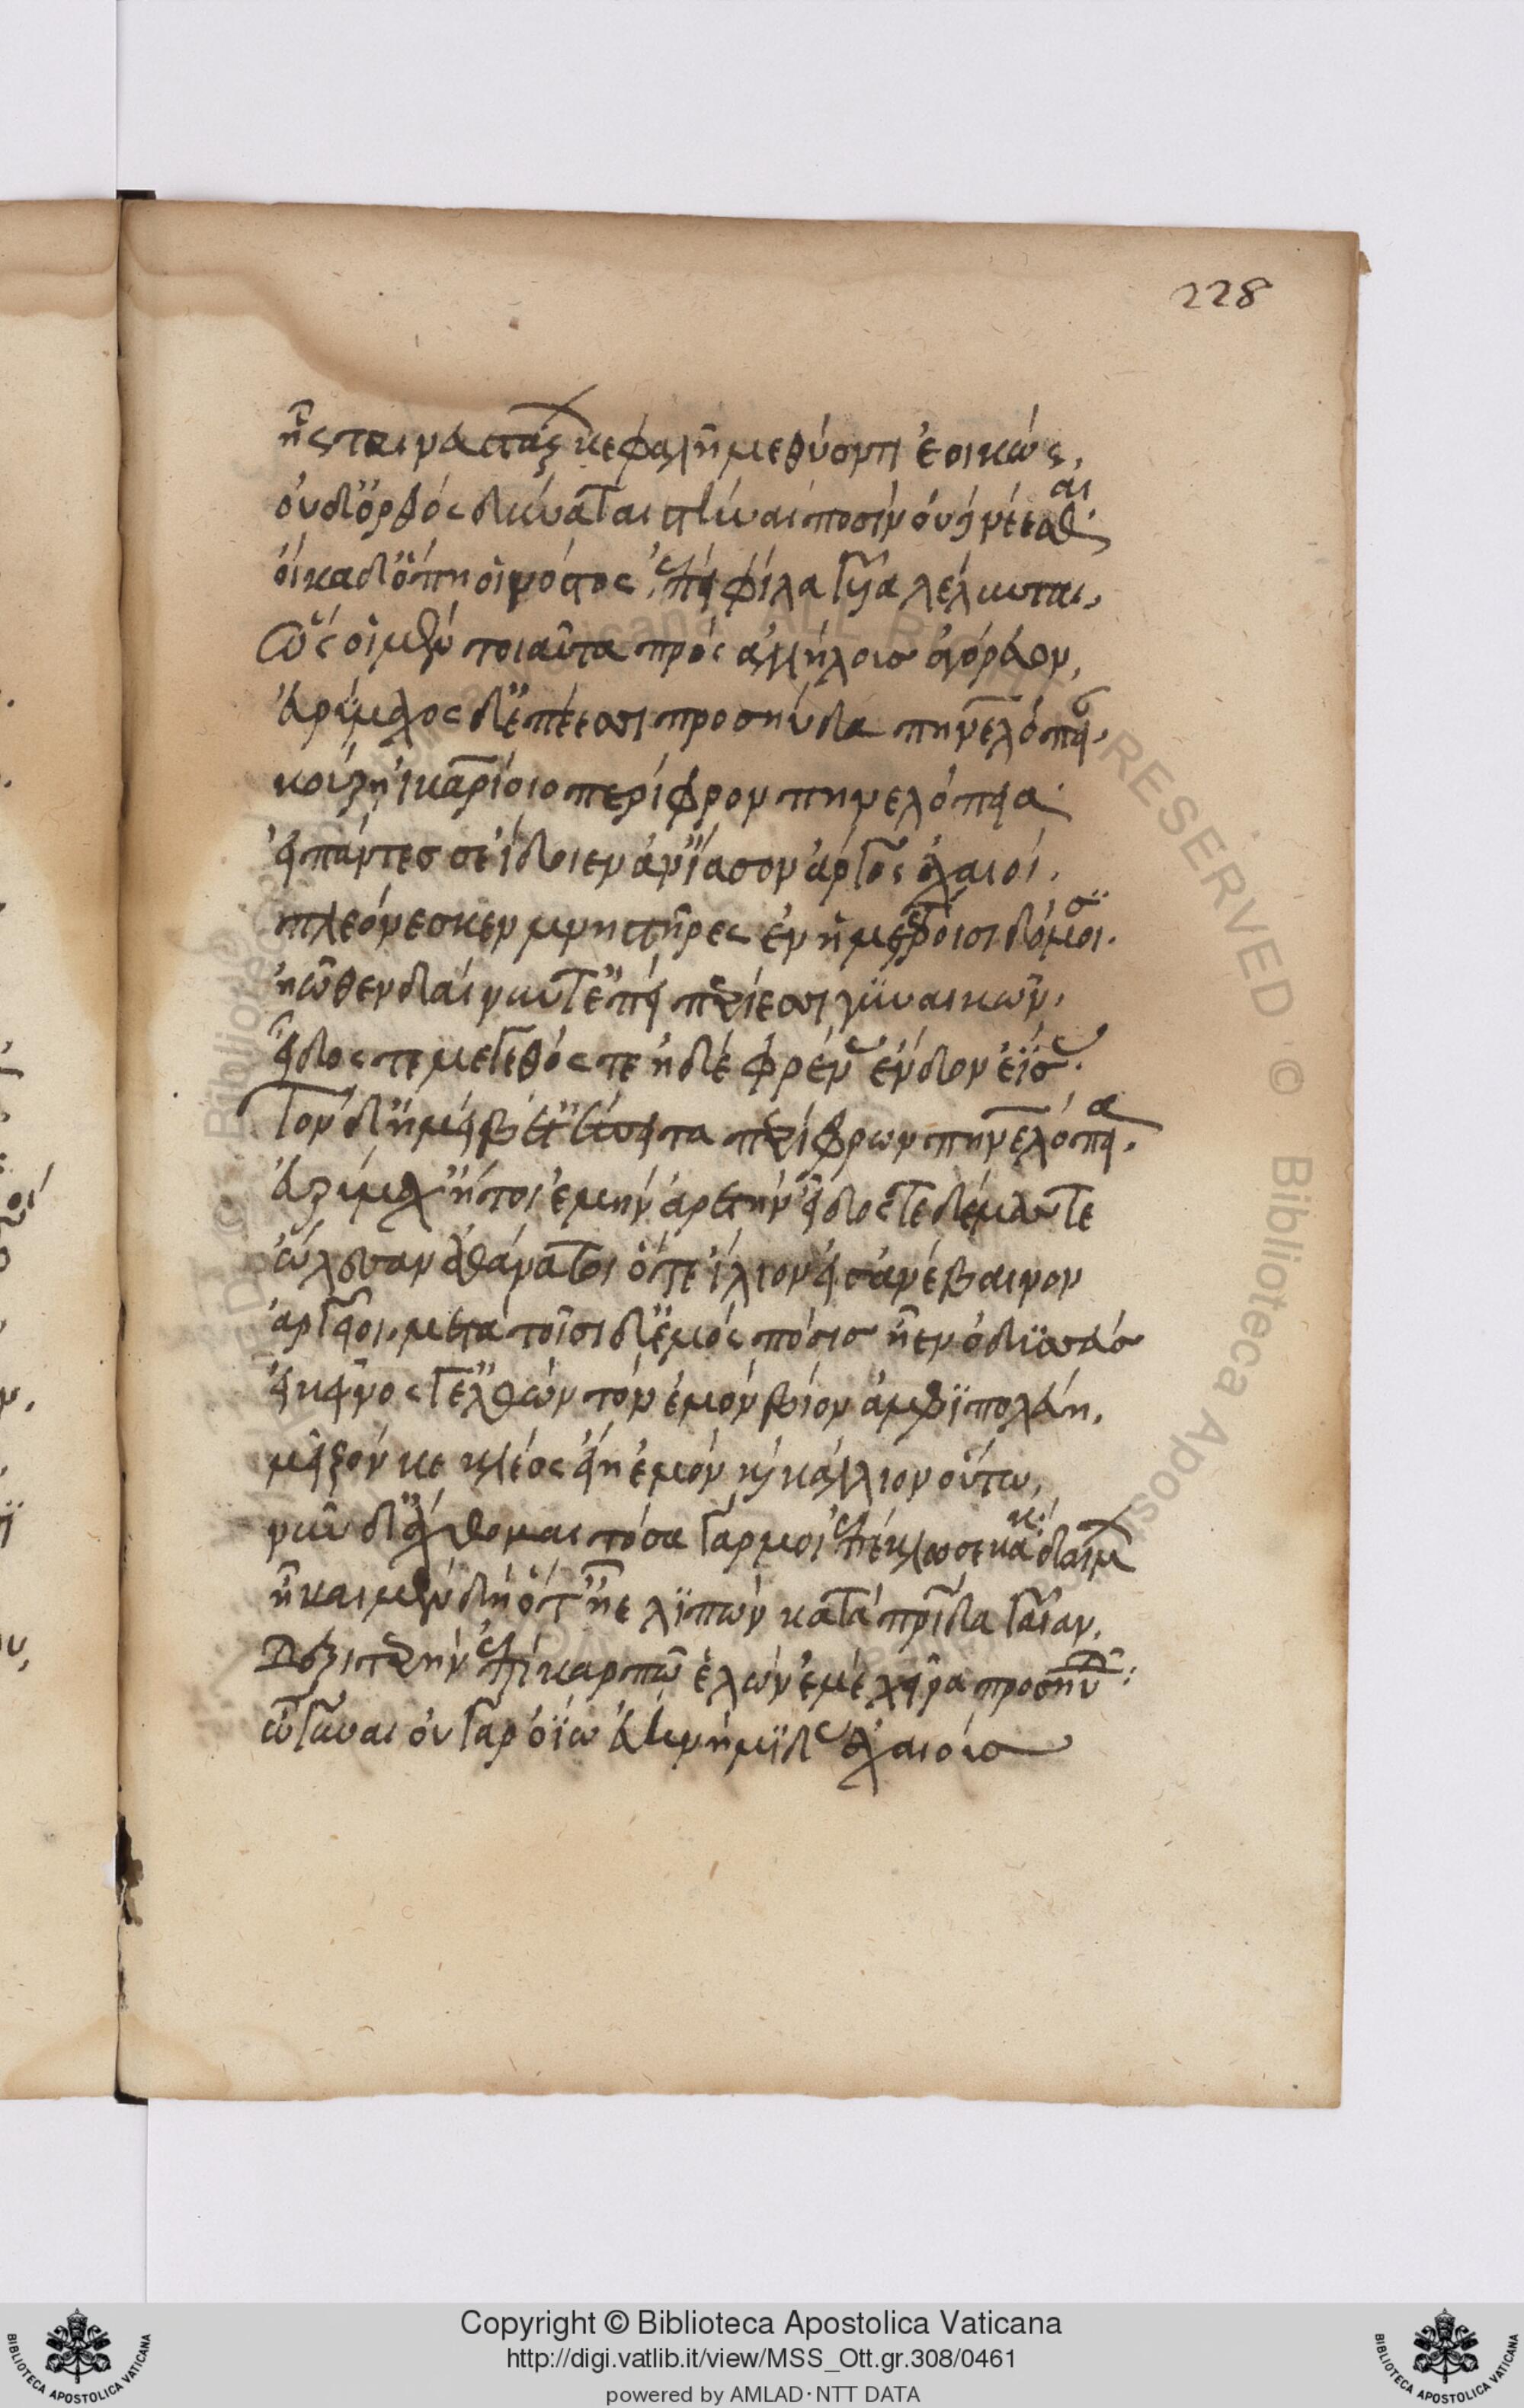 228
ἧσται νευστάζων κεφαλῆ μεθύοντι ἐοικώς,
οὐδ' ὀρθὸς δύναται στῆναι ποσὶν οὐδὲ νέεσθαι
οἴκαδ' ὅπη οἱ νόστος, ἐπεὶ φίλα γυῖα λέλυνται,
Ὣς οἱ μὲν τοιαῦτα πρὸς ἀλλήλοισ ἀγόρευον,
εὐρύμαχος δ' ἐπέεσσι προσηύδα πηνελόπειαν,
κούρη ἰκαρίοιο περίφρον πηνελόπεια
εἰ πάντεσ σε ἴδοιεν ἀν' ἴασον ἄργος ἀχαιοί.
πλέονες κεν μνηστῆρες ἐν ἡμετέροισι δόμοισι.
ἠῶθεν δαινῦντ' ἐπεὶ περίεσσι γυναικῶν,
εἶδος τε μέγεθός τε ἠδὲ φρένας ἔνδον ἐΐσας.
Τὸν δ' ἠμείβετ' ἔπειτα περίφρων πηνελόπεια.
εὐρύμαχ' ἤτοι ἐμὴν ἀρετὴν εἶδος τε δέμας τε
ὤλεσαν ἀθάνατοι ὅτε ἴλιον εἰσανέβαινον
ἀργεῖοι, μετὰ τοῖσι δ' ἐμὸς πόσισ ἦεν ὀδυσσεύσ
εἰ κεῖνος γ' ἐλθὼν τὸν ἐμὸν βίον ἀμφιπολεύη,
μεῖζόν κε κλέος εἴη ἐμὸν καὶ κάλλιον οὕτω,
νῦν δ' ἄχθομαι τόσα γάρ μοι ἐπέκλωσε κακὰ δαίμων
ἦ καὶ μὲν δὴ ὅτ' ἦε λιπὼν κατὰ πρίδα γαῖαν,
Δεξιτερὴν ἐπὶ καρπῶ ἑλὼν ἐμὲ χεῖρα προσηύδα:
ὦ γύναι οὐ γὰρ ὀΐω ἐϋκνήμιδας ἀχαιοὺσ
Copyright © Biblioteca Apostolica Vaticana
http://digi.vatlib.it/view/MSS_Ott.gr.308/0461
powered by AMLAD·NTT DATA